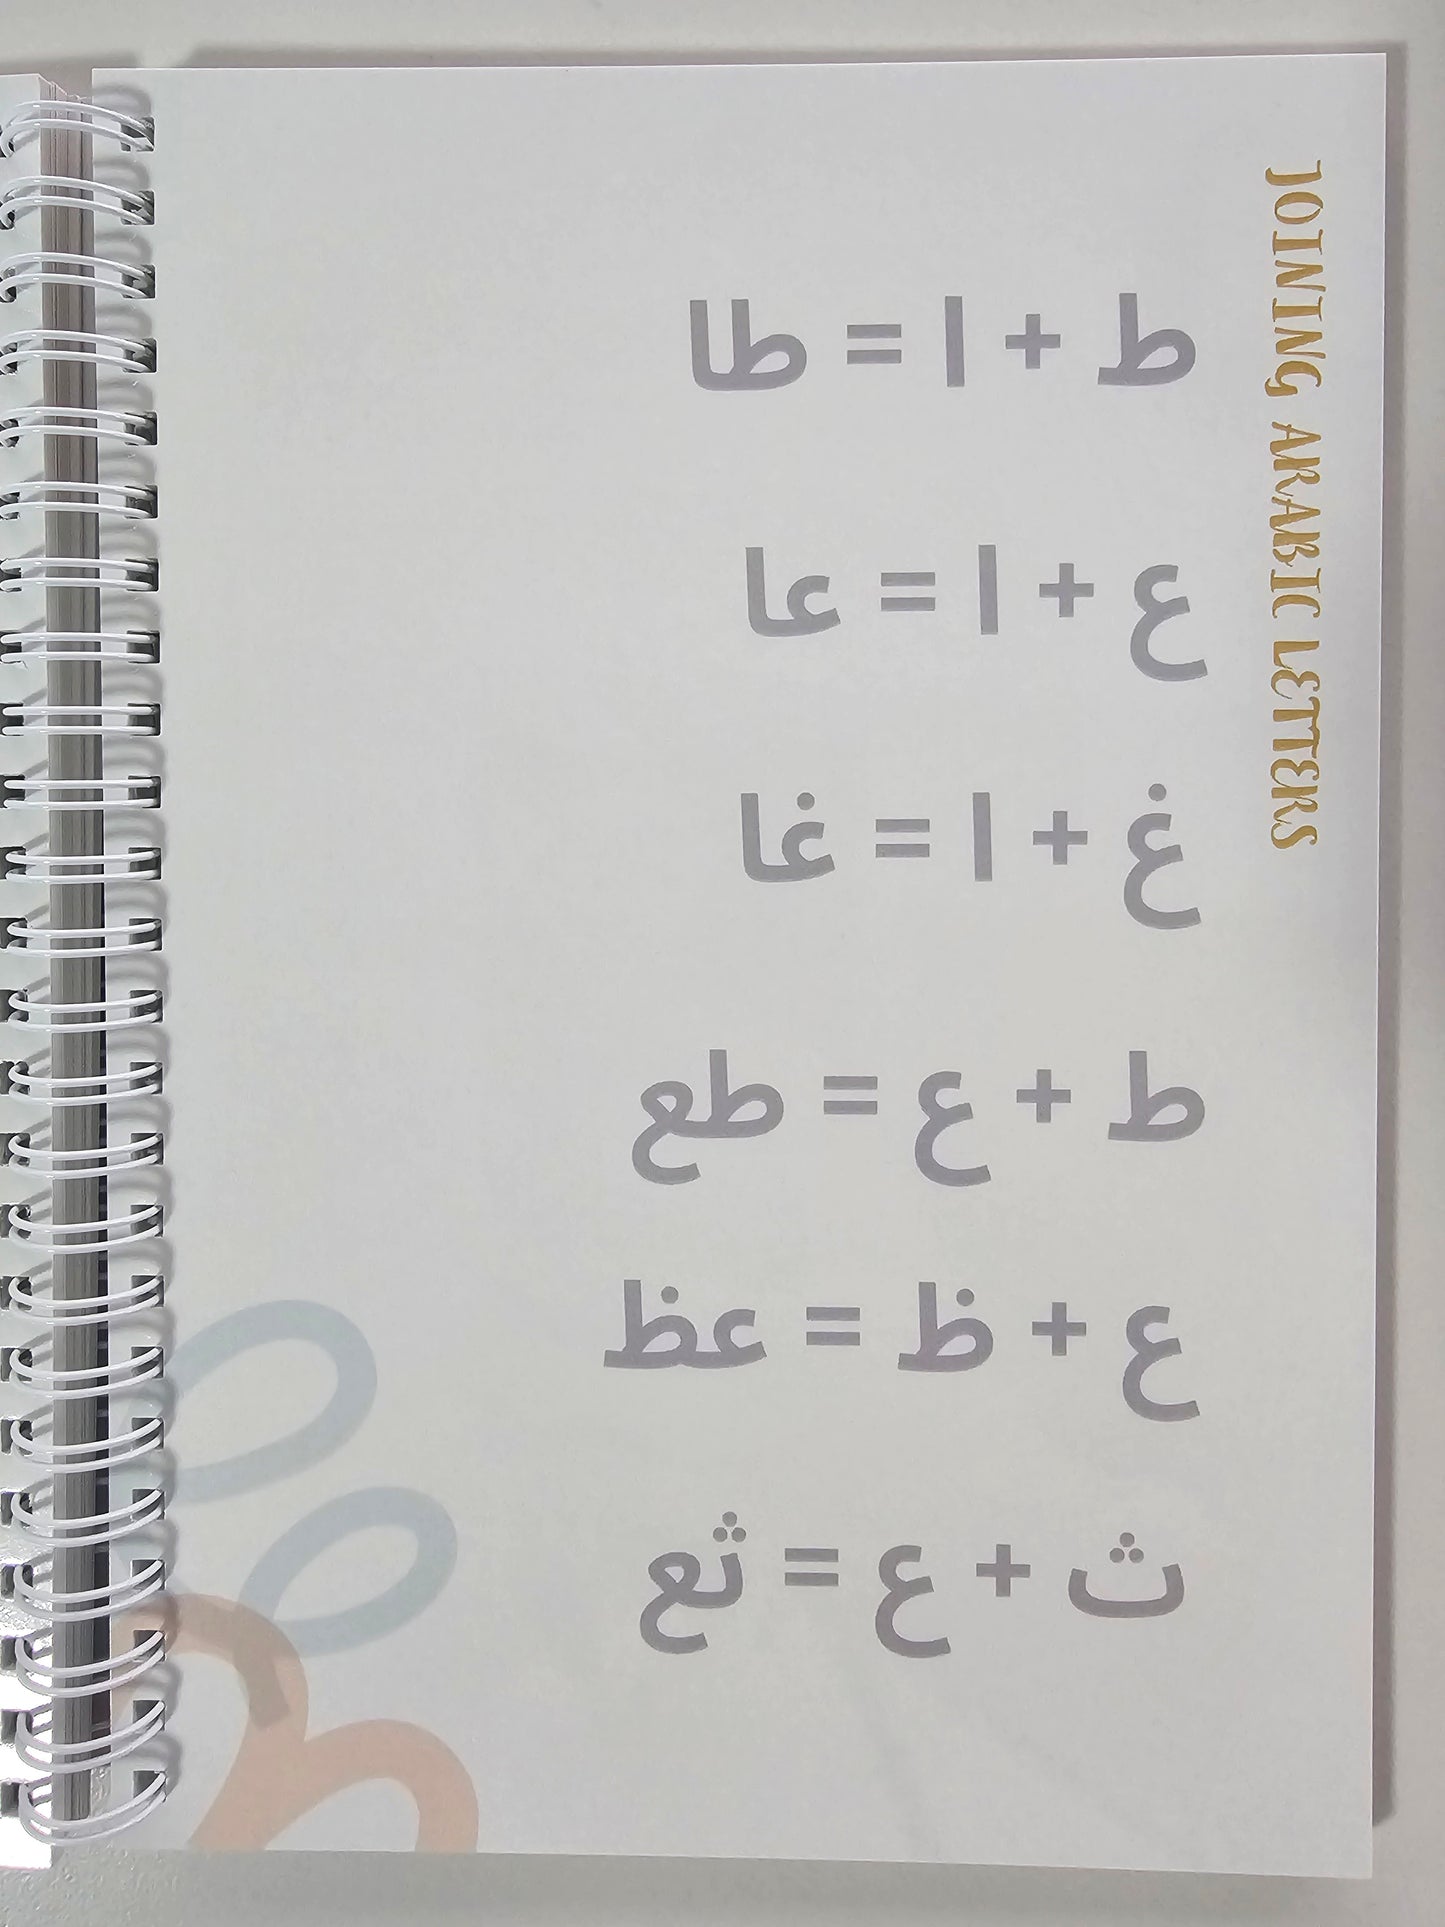 JOINING ARABIC LETTERS
ط + ا = طا
ع + ا = عا
غ + ا = غا
ط + ع = طع
ع + ظ = عظ
ث + ع = ثع